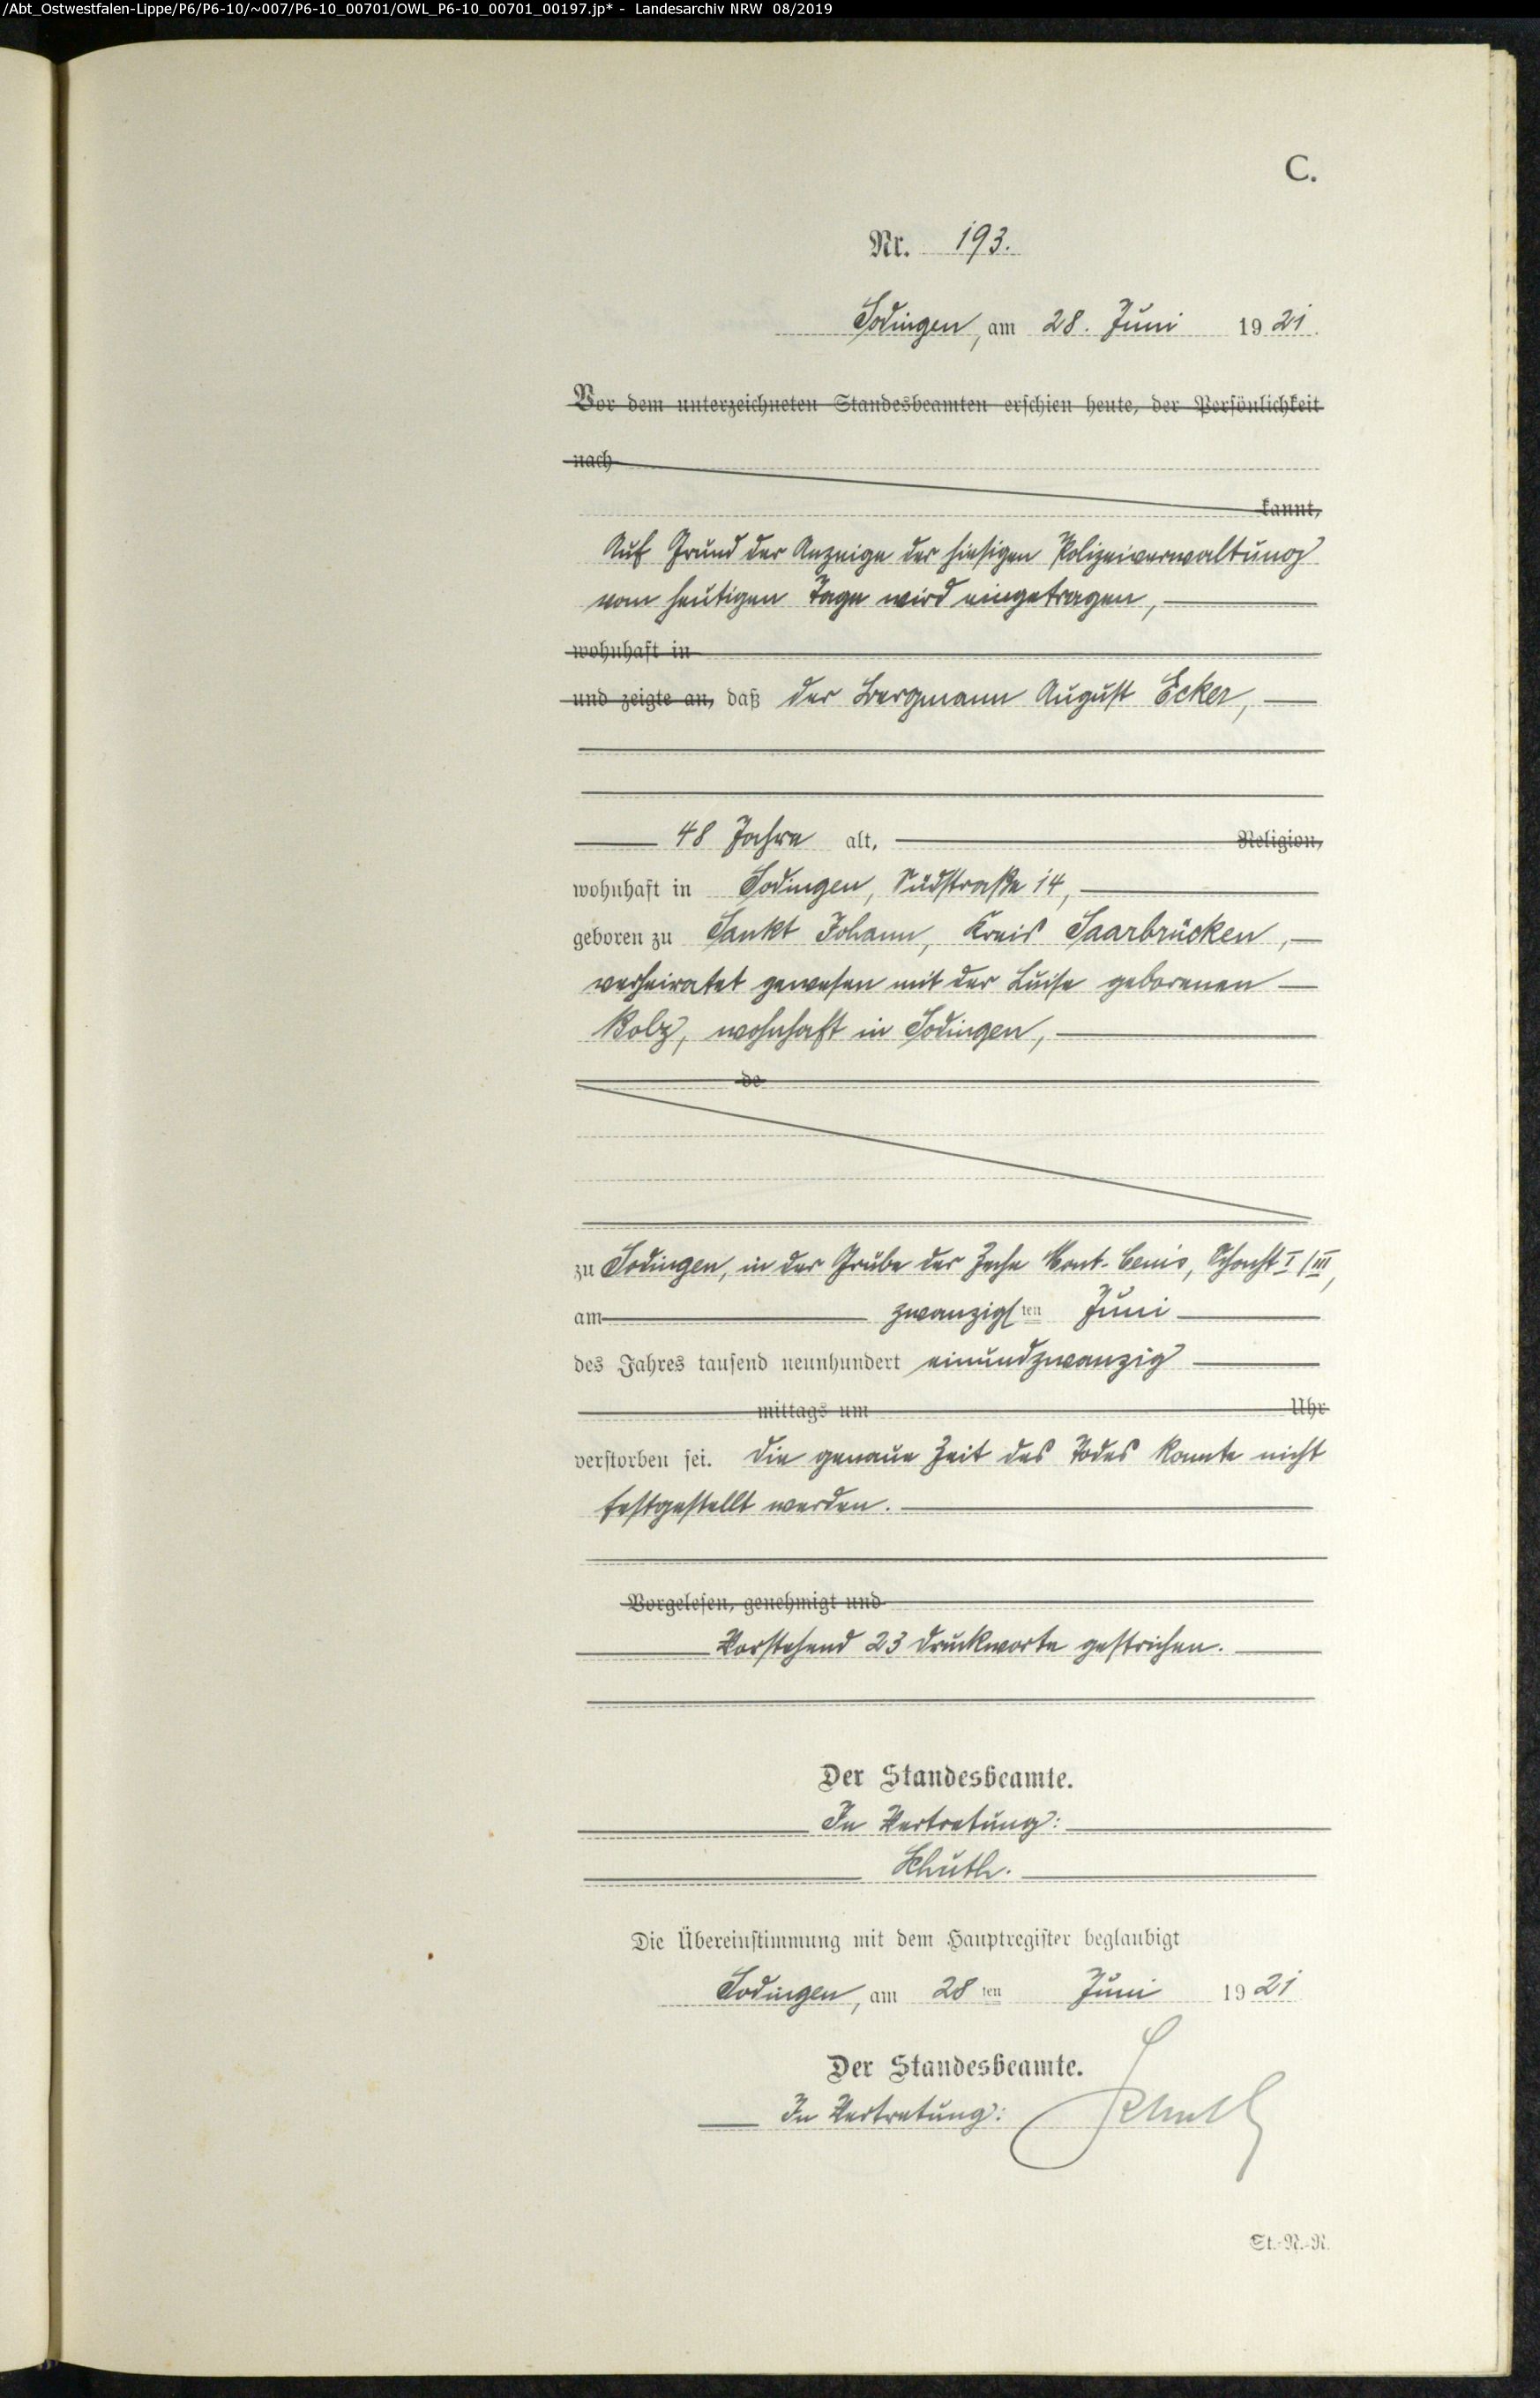 /Abt_Ostwestfalen-Lippe/P6/P6-10/~007/P6-10_00701/OWL_P6-10_00701_00197.jp* - Landesarchiv NRW 08/2019
C.
Nr. 193.
Sodingen, am 28. Juni 1921.
Vor dem unterzeichneten Standesbeamten erschien heute, der Persönlichkeit
nach
kannt,
Auf Grund der Anzeige der hiesigen Polizeiverwaltung
vom heutigen Tage wird eingetragen,
wohnhaft in
und zeigte an, daß der Bergmann August Ecker,
48 Jahre alt, Religion,
wohnhaft in Sodingen, Südstraße 14,
geboren zu Sankt Johann, Kreis Saarbrücken,
verheiratet gewesen mit der Luise geborenen
Kolz, wohnhaft in Sodingen,
de
zu Sodingen, in der Grube der Zeche Mont-Cenis, Schacht I/III,
am zwanzigsten Juni
des Jahres tausend neunhundert einundzwanzig
mittags um Uhr
verstorben sei. Die genaue Zeit des Todes konnte nicht
festgestellt werden.
Vorgelesen, genehmigt und
Vorstehend 23 Druckworte gestrichen.
Der Standesbeamte.
In Vertretung:
Schuth.
Die Übereinstimmung mit dem Hauptregister beglaubigt
Sodingen, am 28ten Juni 1921
Der Standesbeamte.
In Vertretung: Schuth
St.-N.-R.